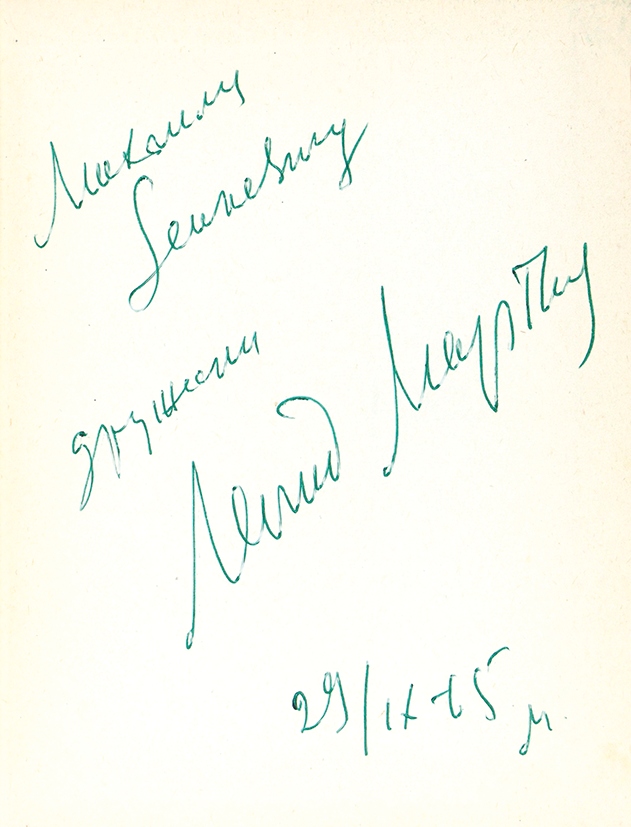 Михаилу
Зенкевичу
дружески
Леонид Мартынов
29/IX-65 г.